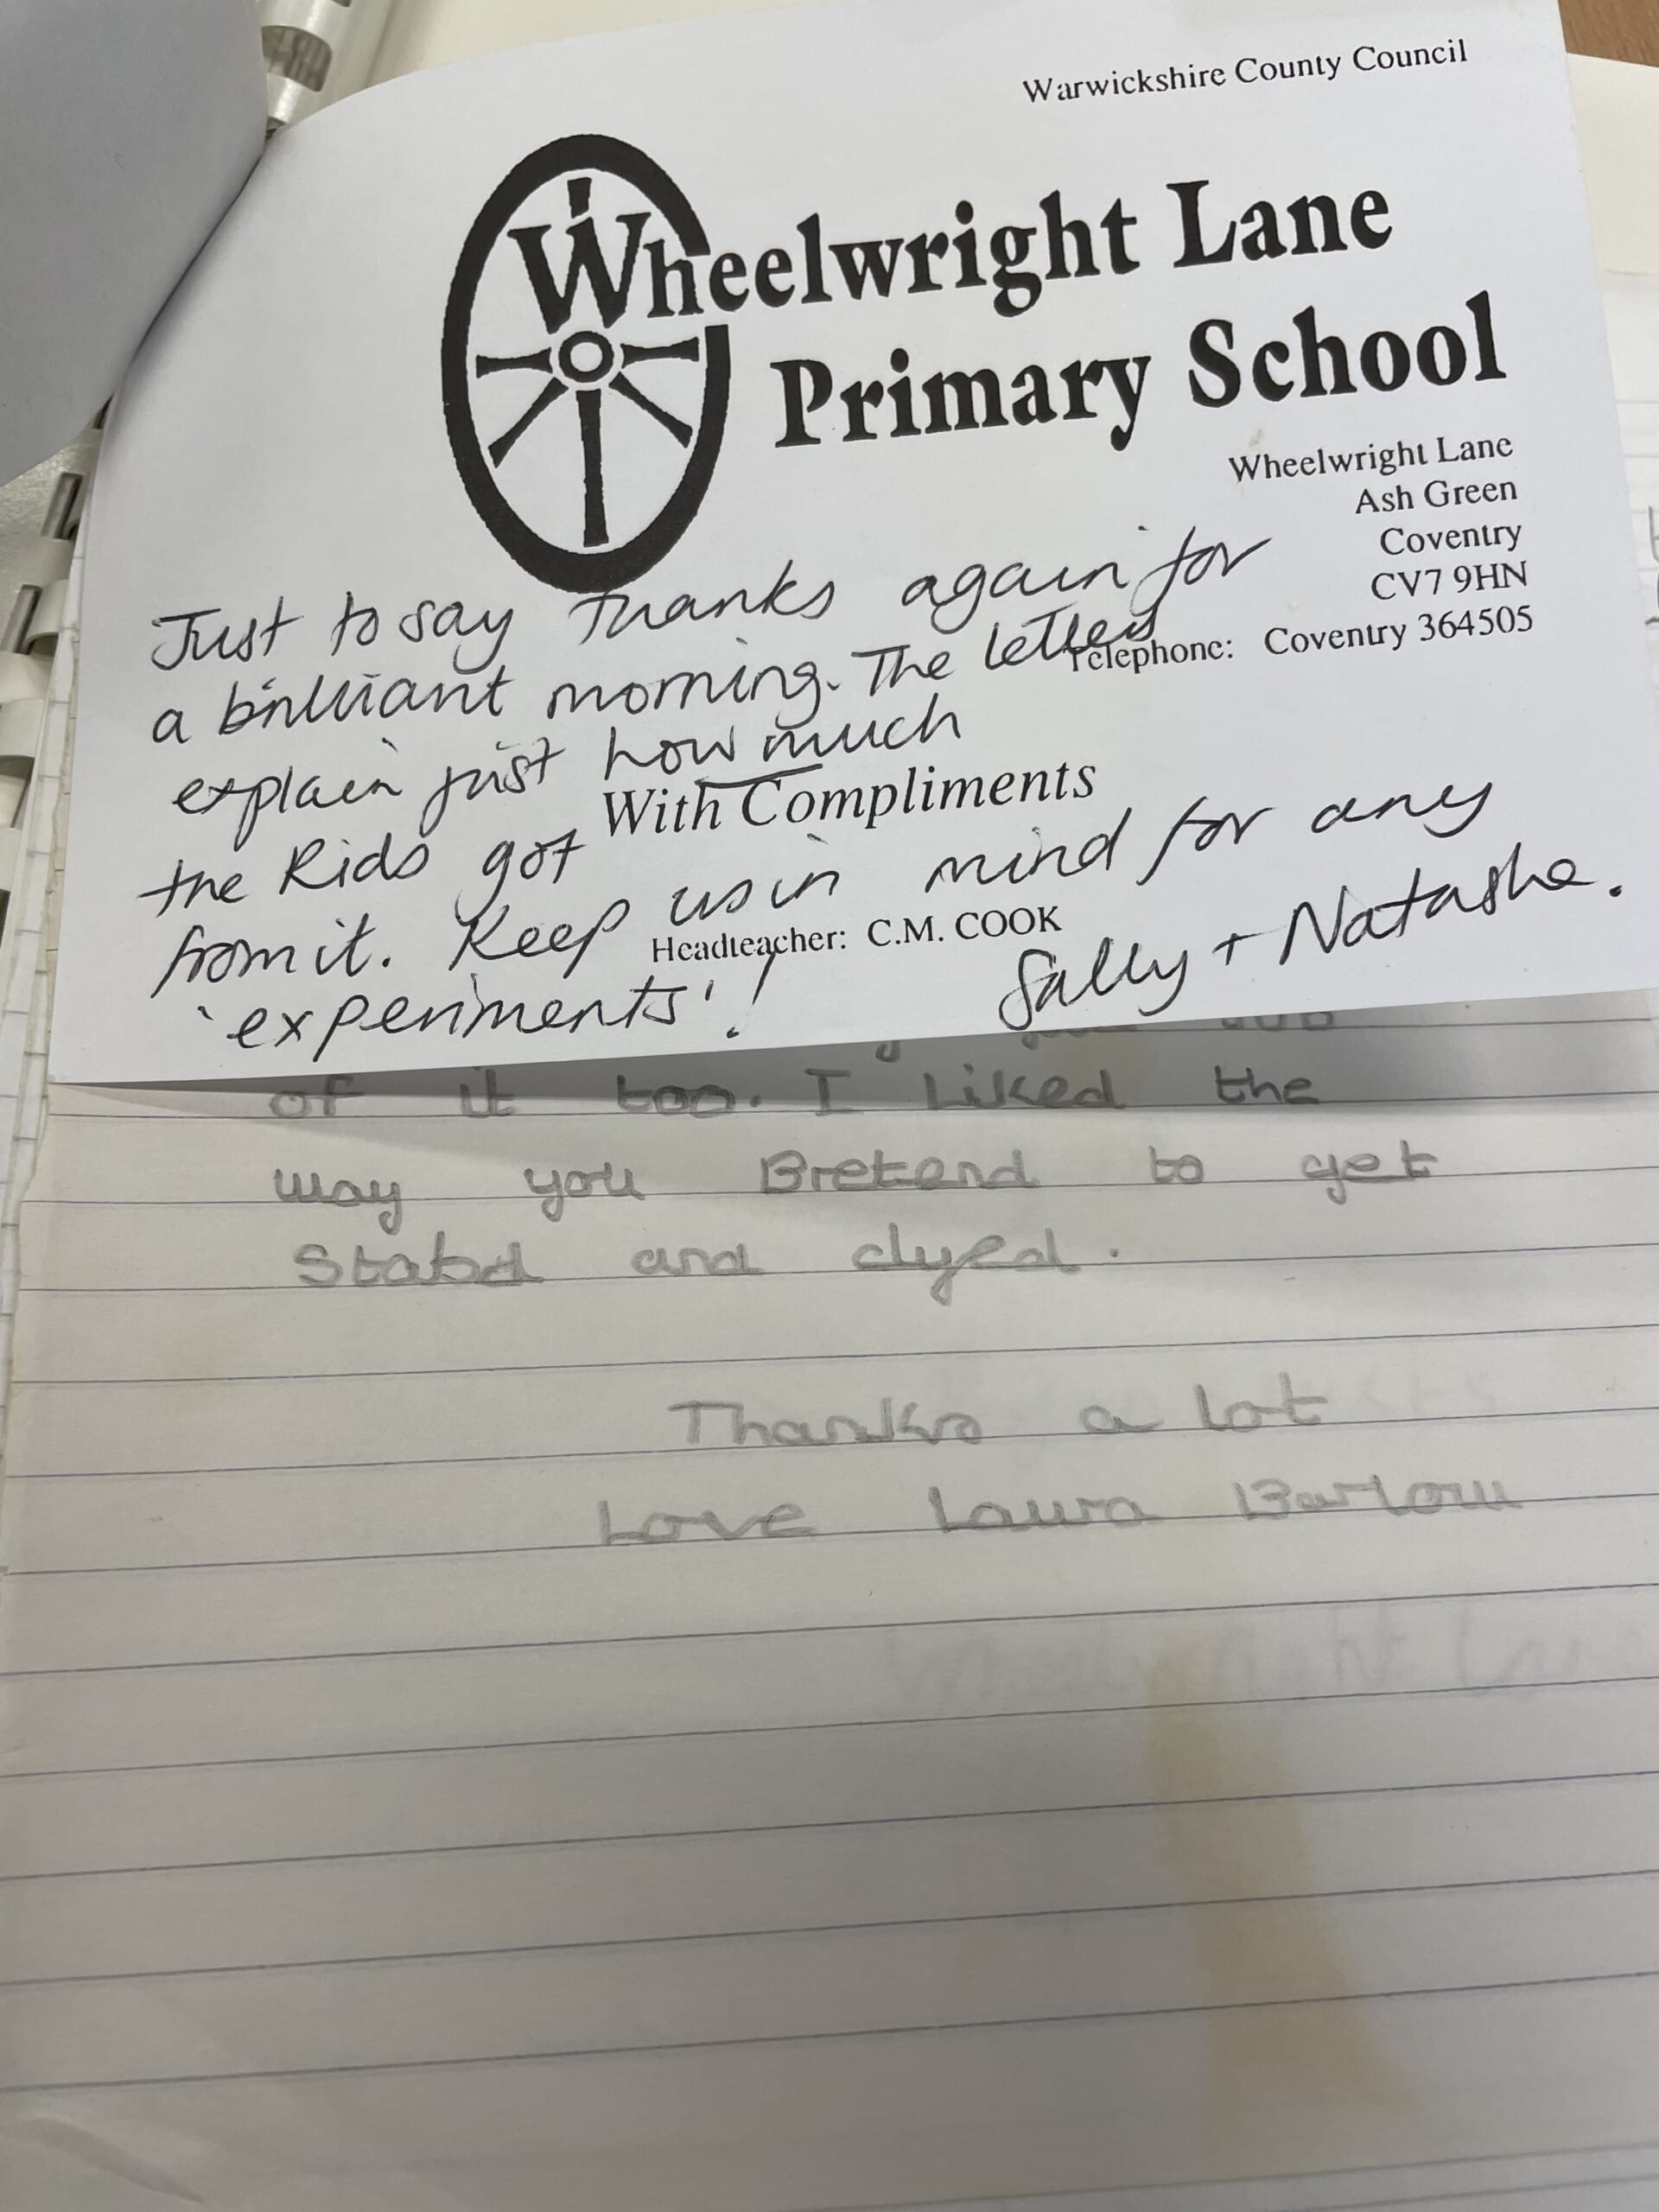 Warwickshire County Council
Wheelwright Lane
Primary School
Wheelwright Lane
Ash Green
Coventry
CV7 9HN
Telephone: Coventry 364505
Just to say thanks again for
a brilliant morning. The letters
explain just how much
With Compliments
the kids got
from it. Keep us in mind for any
Headteacher: C.M. COOK
'experiments'!
Sally + Natasha.
of it too. I Liked the
way you Bretend to get
Stabd and dyed.
Thanks a lot
Love Laura Barlow
Wheelwright Lane